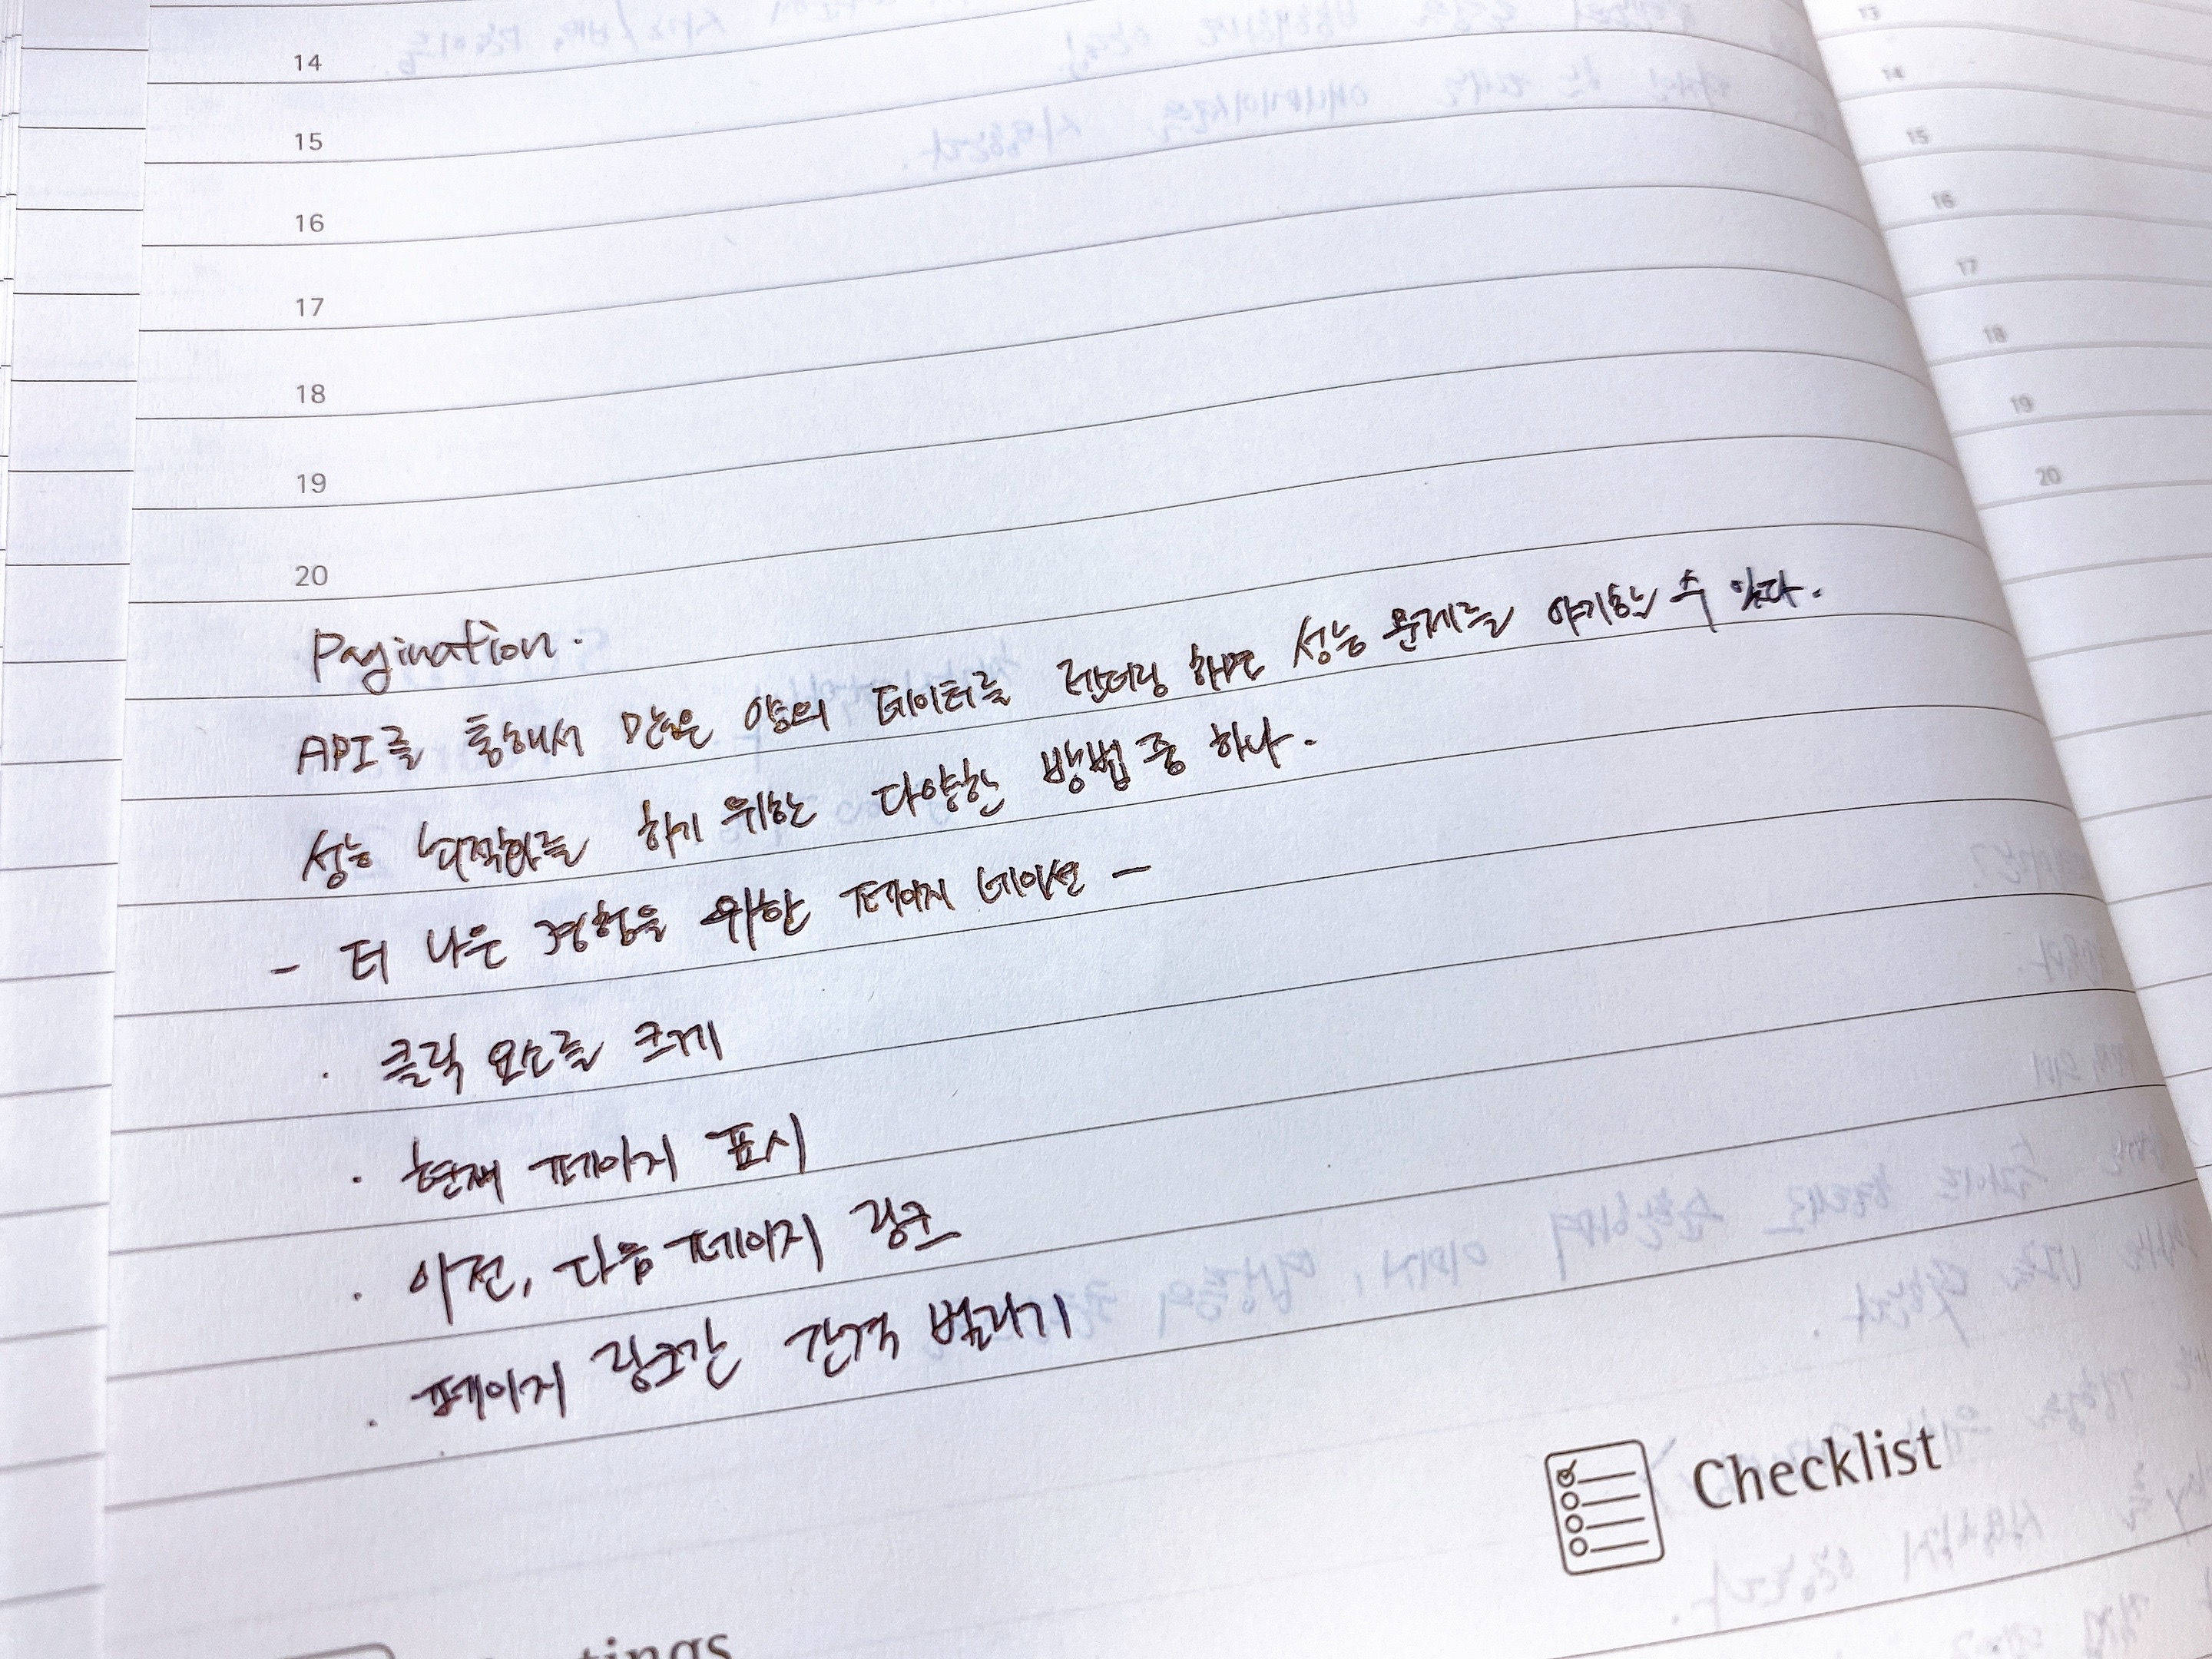 14
15
16
17
18
19
20
Pagination.
API를 통해서 많은 양의 데이터를 렌더링 하면 성능 문제를 야기할 수 있다.
성능 최적화를 하기 위한 다양한 방법 중 하나.
- 더 나은 경험을 위한 페이지 네이션 -
· 클릭 요소를 크게
· 현재 페이지 표시
· 이전, 다음 페이지 링크
· 페이지 링크간 간격 벌리기
Checklist
13
14
15
16
17
18
19
20